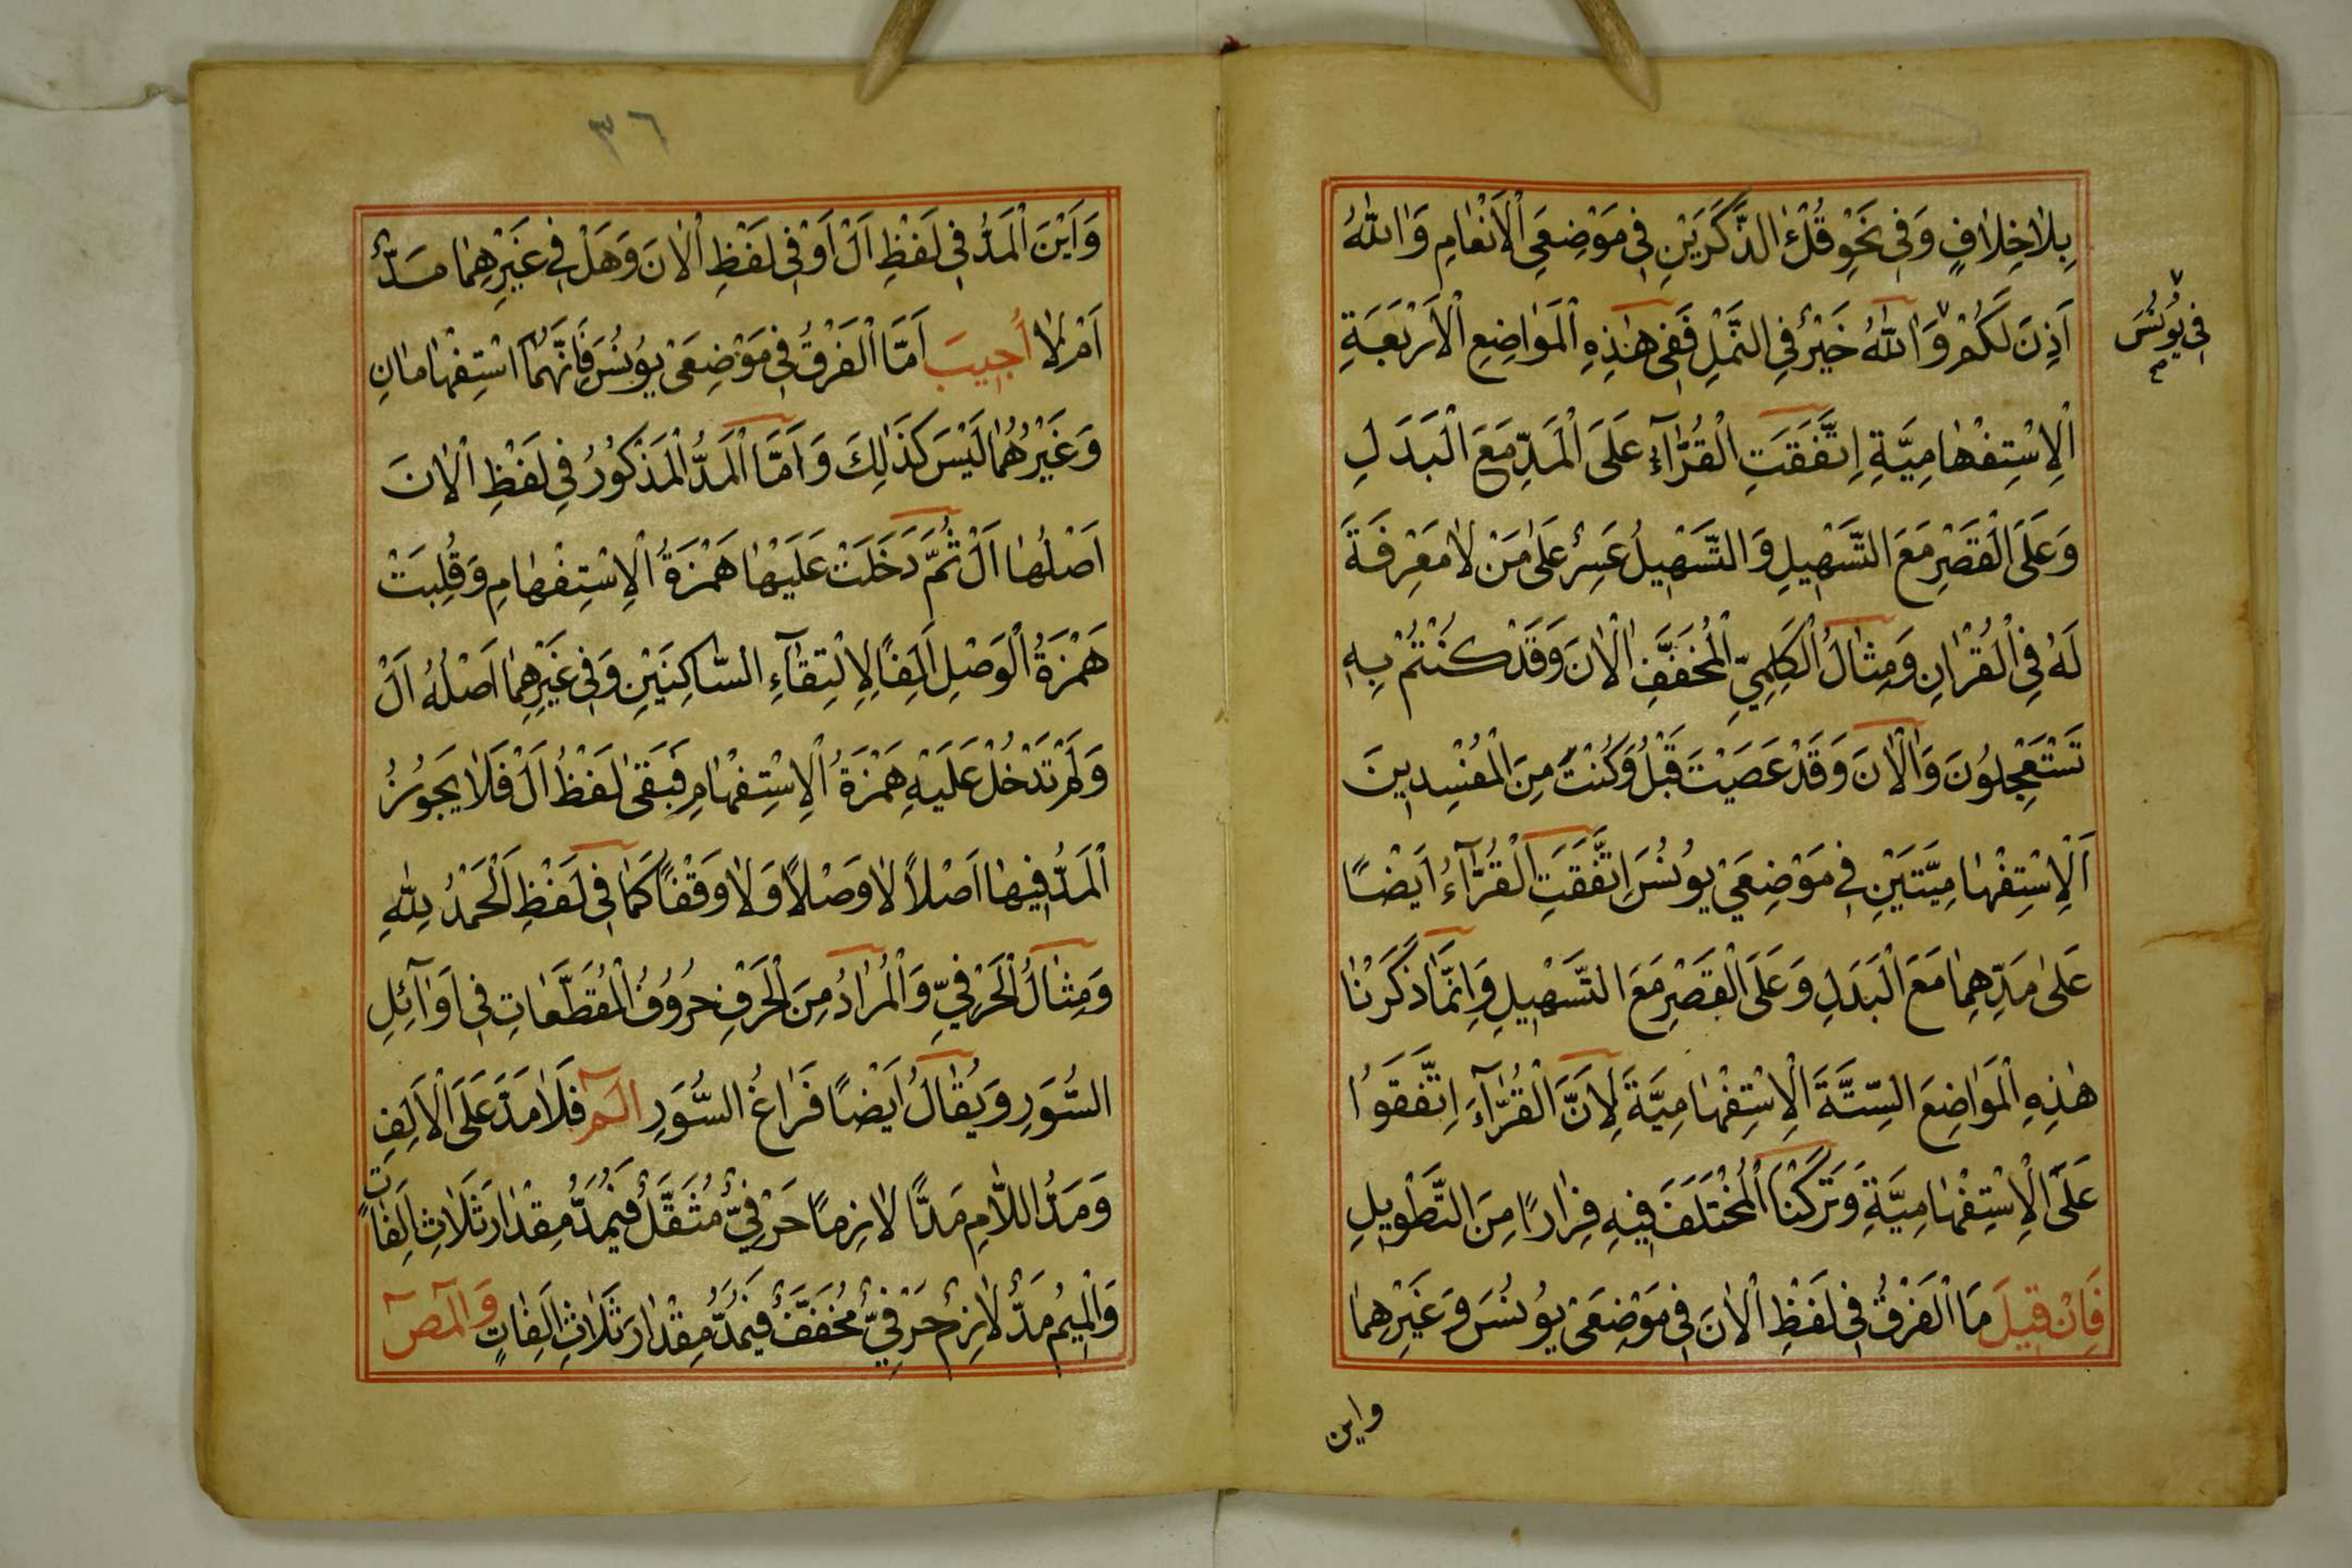 بِلَا خِلَافٍ وَفِي نَحْوِ قُلْ ءَالذَّكَرَيْنِ فِي مَوْضِعَيِ الْاَنْعَامِ وَاٰللّٰهُ
اَذِنَ لَكُمْ وَاٰللّٰهُ خَيْرٌ فِي النَّمْلِ فَفِي هٰذِهِ الْمَوَاضِعِ الْاَرْبَعَةِ
فِي يُونُسَ
الْاِسْتِفْهَامِيَّةِ اِتَّفَقَتِ الْقُرَّاۤءُ عَلَى الْمَدِّ مَعَ الْبَدَلِ
وَعَلَى الْقَصْرِ مَعَ التَّسْهِيلِ وَالتَّسْهِيلُ عَسِرٌ عَلٰى مَنْ لَا مَعْرِفَةَ
لَهُ فِي الْقُرْاٰنِ وَمِثَالُ الْكَلِمِيِّ الْمُخَفَّفِ اٰلْاٰنَ وَقَدْ كُنْتُمْ بِهِ
تَسْتَعْجِلُونَ وَاٰلْاٰنَ وَقَدْ عَصَيْتَ قَبْلُ وَكُنْتَ مِنَ الْمُفْسِدِينَ
اَلْاِسْتِفْهَامِيَّتَيْنِ فِي مَوْضِعَيْ يُونُسَ اِتَّفَقَتِ الْقُرَّاۤءُ اَيْضًا
عَلٰى مَدِّهِمَا مَعَ الْبَدَلِ وَعَلَى الْقَصْرِ مَعَ التَّسْهِيلِ وَاِنَّمَا ذَكَرْنَا
هٰذِهِ الْمَوَاضِعَ السِّتَّةَ الْاِسْتِفْهَامِيَّةَ لِاَنَّ الْقُرَّاۤءَ اِتَّفَقُوا
عَلَى الْاِسْتِفْهَامِيَّةِ وَتَرَكْنَا الْمُخْتَلَفَ فِيهِ فِرَارًا مِنَ التَّطْوِيلِ
فَاِنْ قِيلَ مَا الْفَرْقُ فِي لَفْظِ الْاٰنَ فِي مَوْضِعَيْ يُونُسَ وَغَيْرِهِمَا
واين
٣٦
وَاَيْنَ الْمَدُّ فِي لَفْظِ اَلْ اَوْ فِي لَفْظِ الْاٰنَ وَهَلْ فِي غَيْرِهِمَا مَدٌّ
اَمْ لَا اُجِيبَ اَمَّا الْفَرْقُ فِي مَوْضِعَيْ يُونُسَ فَاِنَّهُمَا اسْتِفْهَامَانِ
وَغَيْرُهُمَا لَيْسَ كَذٰلِكَ وَاَمَّا الْمَدُّ الْمَذْكُورُ فِي لَفْظِ الْاٰنَ
اَصْلُهَا اَلْ ثُمَّ دَخَلَتْ عَلَيْهَا هَمْزَةُ الْاِسْتِفْهَامِ وَقُلِبَتْ
هَمْزَةُ الْوَصْلِ اَلِفًا لِاِلْتِقَاۤءِ السَّاكِنَيْنِ وَفِي غَيْرِهِمَا اَصْلُهُ اَلْ
وَلَمْ تَدْخُلْ عَلَيْهِ هَمْزَةُ الْاِسْتِفْهَامِ فَبَقِيَ لَفْظُ اَلْ فَلَا يَجُوزُ
الْمَدُّ فِيهَا اَصْلًا لَا وَصْلًا وَلَا وَقْفًا كَمَا فِي لَفْظِ اَلْحَمْدُ لِلّٰهِ
وَمِثَالُ الْحَرْفِيِّ وَالْمُرَادُ مِنَ الْحَرْفِ حُرُوفُ الْمُقَطَّعَاتِ فِي اَوَاۤئِلِ
السُّوَرِ وَيُقَالُ اَيْضًا فَرَاغُ السُّوَرِ الٓمٓ فَلَا مَدَّ عَلَى الْاَلِفِ
وَمَدُّ اللَّامِ مَدًّا لَازِمًا حَرْفِيٌّ مُثَقَّلٌ فَيُمَدُّ مِقْدَارَ ثَلَاثِ اَلِفَاتٍ
وَالْمِيمُ مَدٌّ لَازِمٌ حَرْفِيٌّ مُخَفَّفٌ فَيُمَدُّ مِقْدَارَ ثَلَاثِ اَلِفَاتٍ وَالٓمٓصٓ